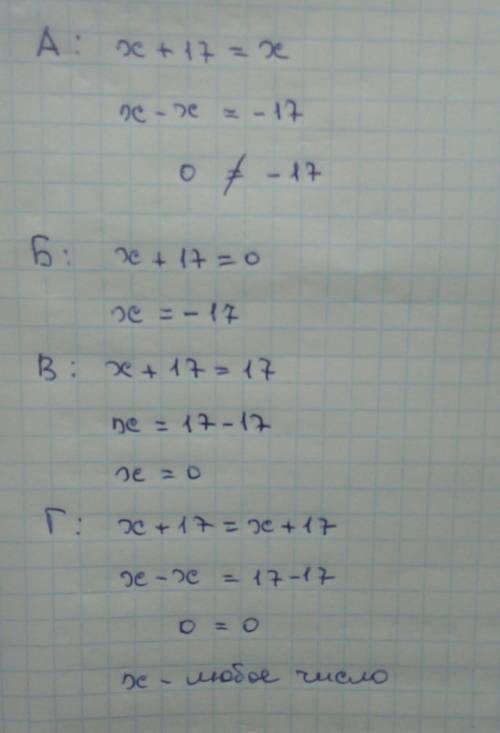 А: x + 17 = x
x - x = -17
0 ≠ -17
Б: x + 17 = 0
x = -17
В: x + 17 = 17
x = 17 - 17
x = 0
Г: x + 17 = x + 17
x - x = 17 - 17
0 = 0
x - любое число